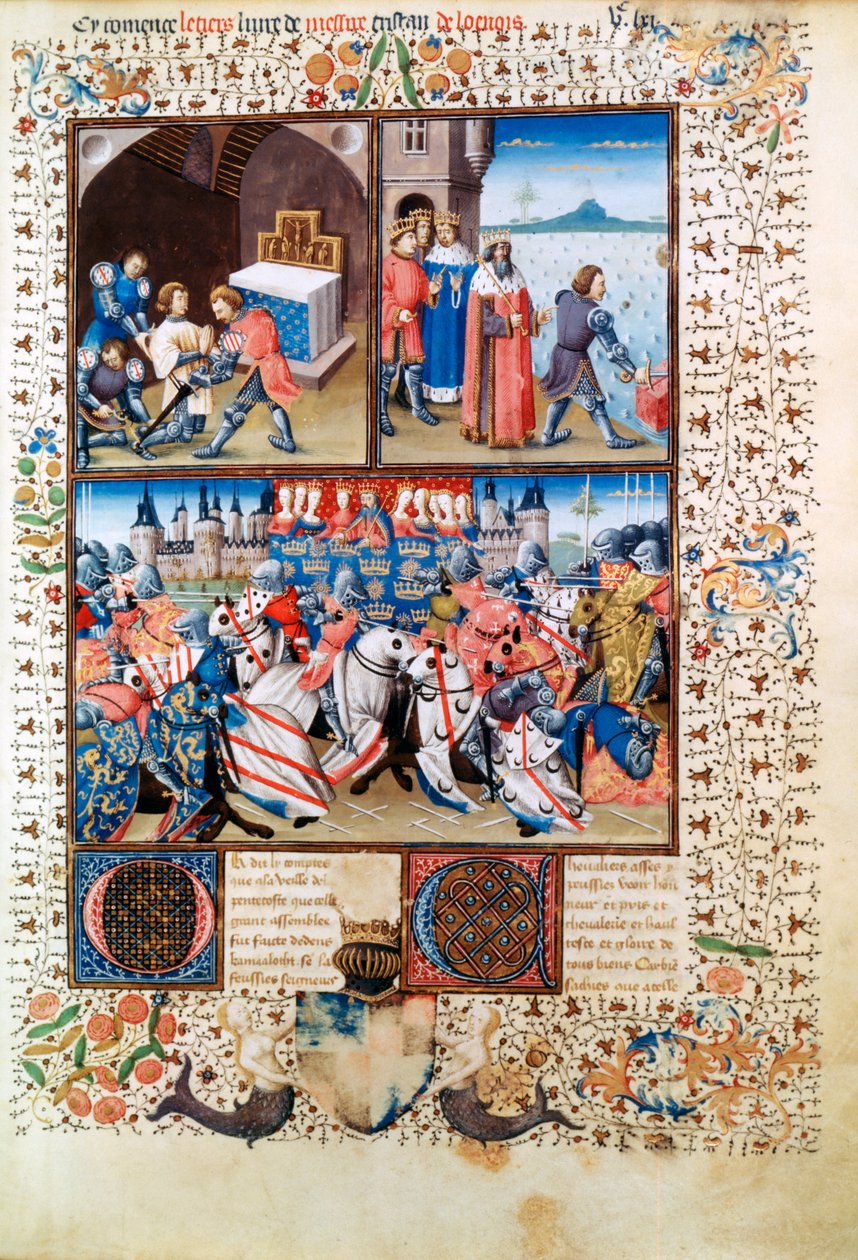 Cy comence letiers liure de messire tristan de loenois.
R dit ly comptes
que a la veille de
pentecoste que celle
grant assemblee
fut faicte dedens
kamaaloth. se la
feussies seigneurs
Chevaliers asses y
peussies veoir hon
neur et pris et
chevalerie et haul
tesce et gloire de
tous biens Car bie
sachies que a celle